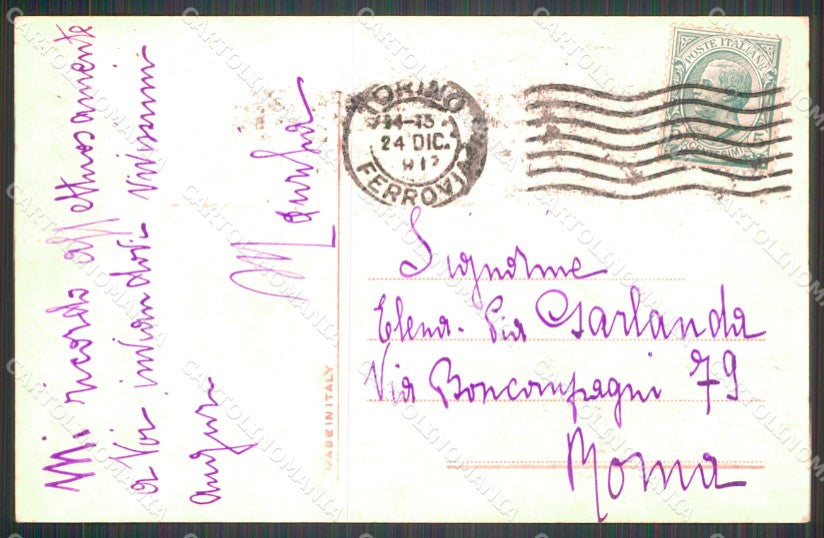 Mi ricordo affettuosamente
a Voi inviandovi vivissimi
auguri
MADE IN ITALY
TORINO
14-15
24 DIC.
FERROVIA
POSTE ITALIANE
Signorine
Elena - Pia Garlanda
Via Boncompagni 79
Roma
CARTOLINOMANIA